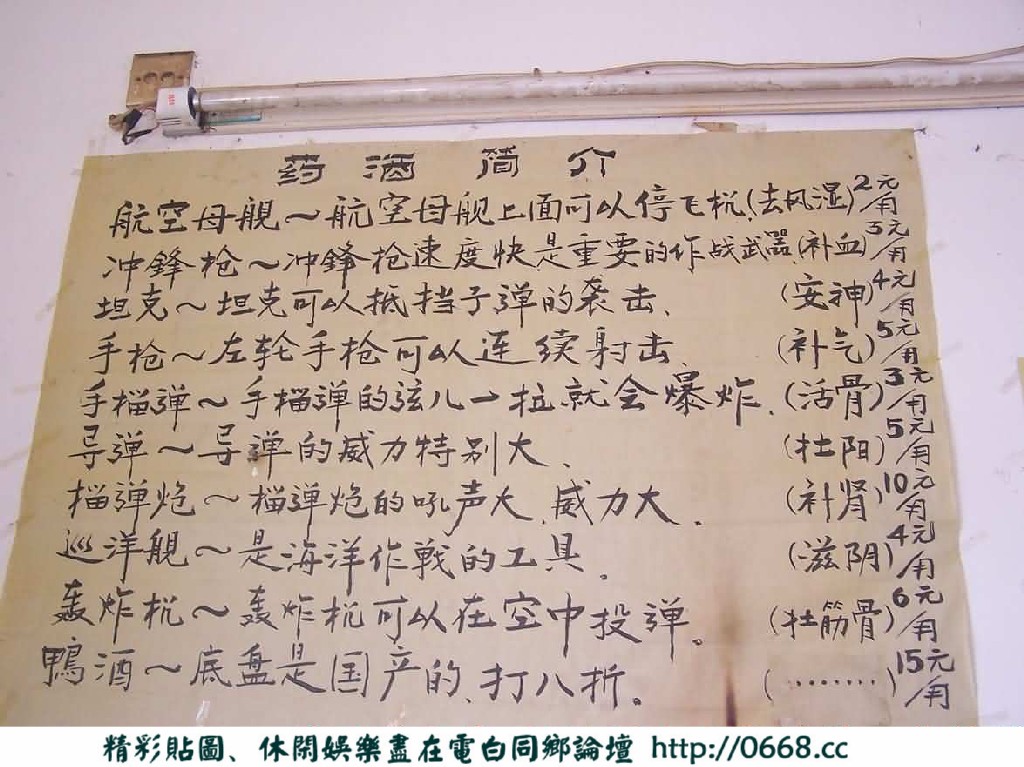 药酒简介
航空母舰～航空母舰上面可以停飞机.(去风湿)2元/角
冲鋒枪～冲鋒枪速度快是重要的作战武器(补血)5元/角
坦克～坦克可以抵挡子弹的袭击.(安神)4元/角
手枪～左轮手枪可以连续射击.(补气)5元/角
手榴弹～手榴弹的弦儿一拉就会爆炸.(活骨)3元/角
导弹～导弹的威力特别大.(壮阳)5元/角
榴弹炮～榴弹炮的吼声大.威力大.(补肾)10元/角
巡洋舰～是海洋作戰的工具。(滋阴)4元/角
轰炸机～轰炸机可以在空中投弹。(壮筋骨)6元/角
鴨酒～底盘是国产的.打八折。(………)15元/角
精彩貼圖、休閑娛樂盡在電白同鄉論壇 http://0668.cc